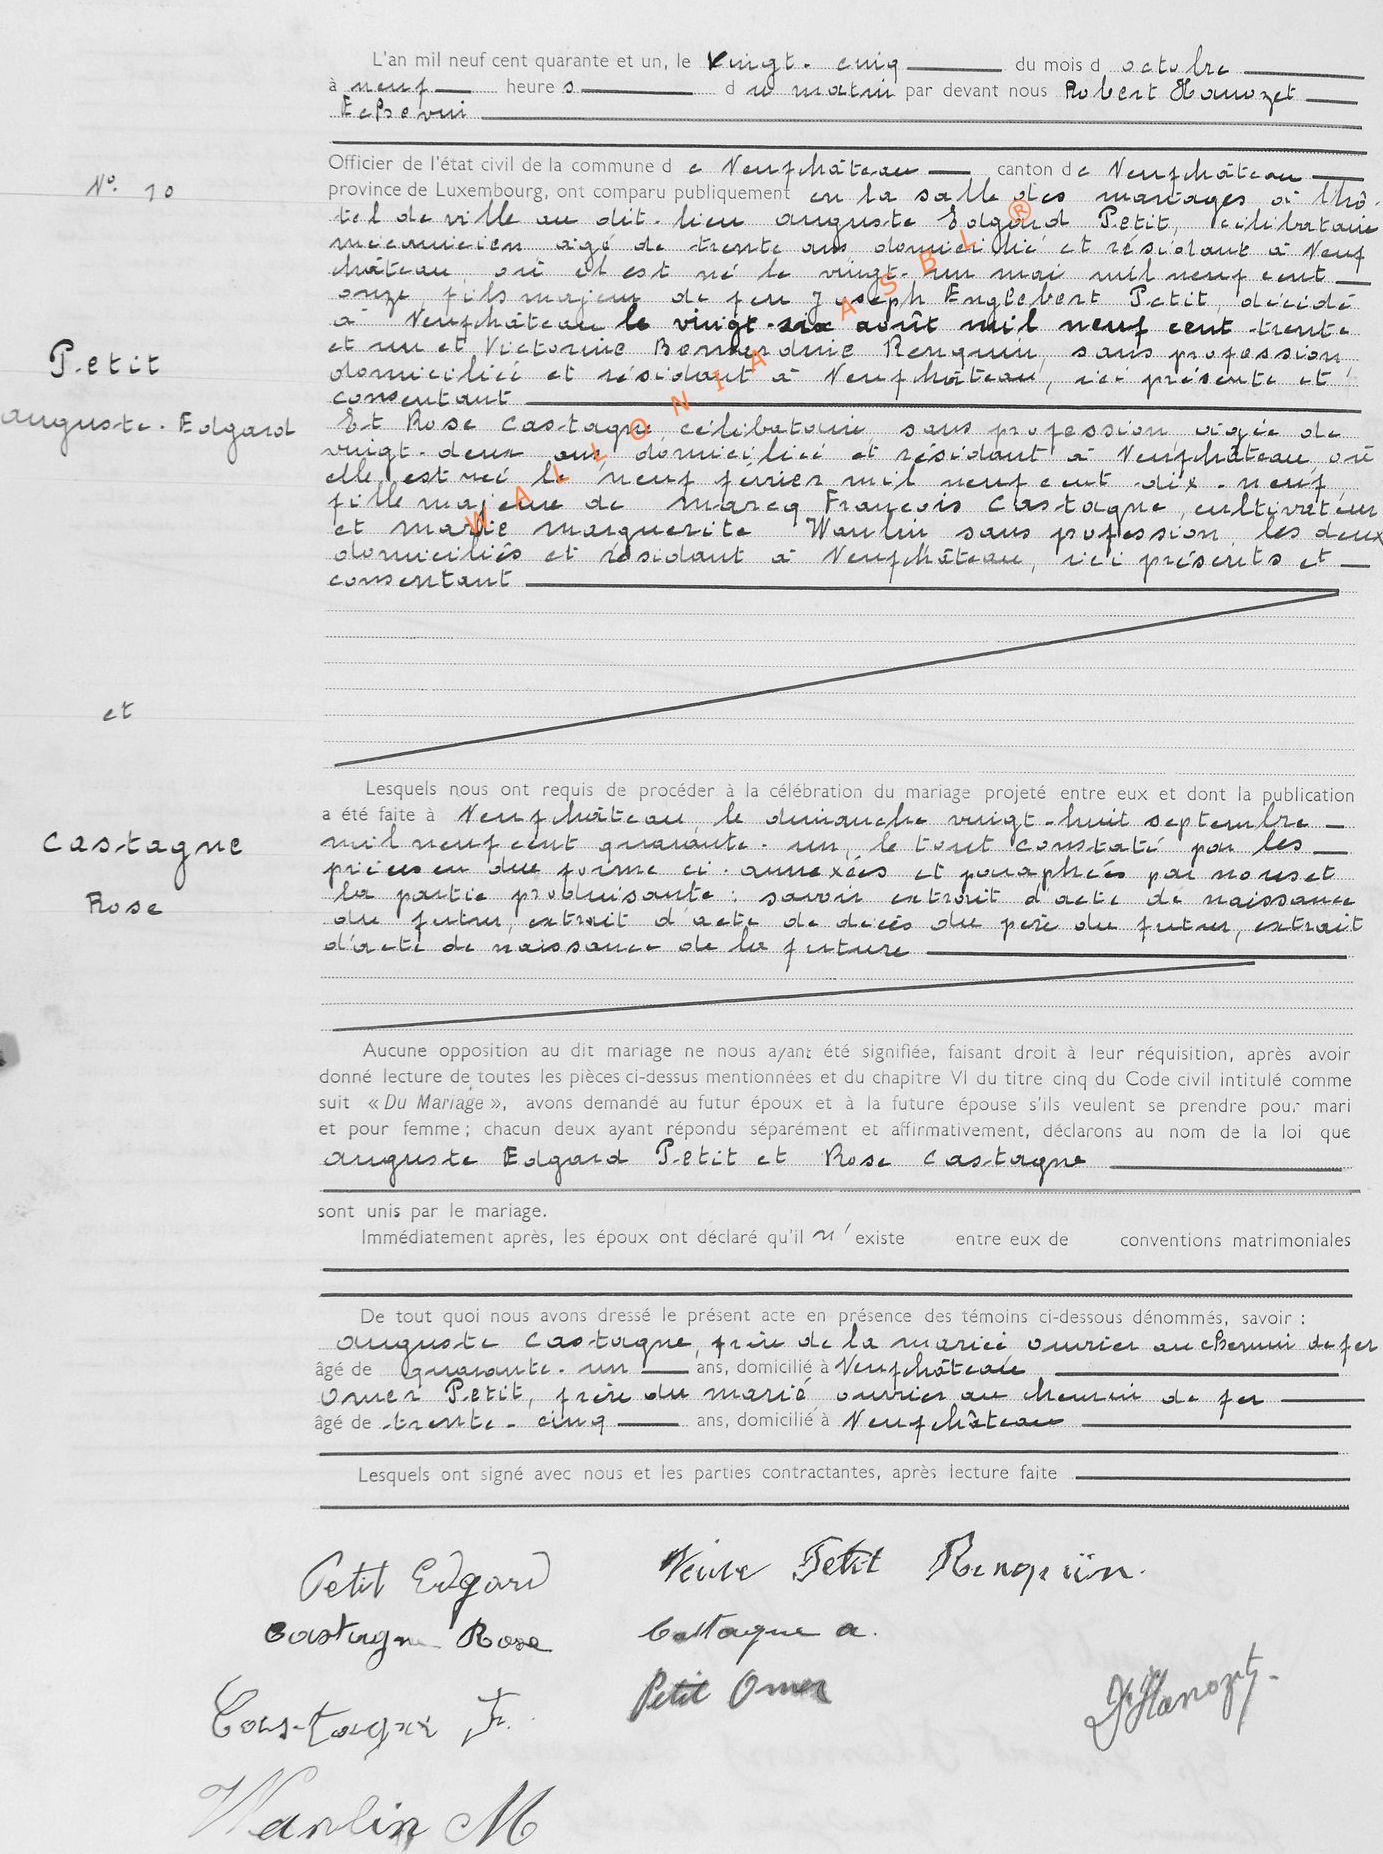 L'an mil neuf cent quarante et un, le vingt-cinq du mois d octobre
à neuf heure s d u matin par devant nous Robert Hanozet
Echevin
Officier de l'état civil de la commune d e Neufchâteau canton de Neufchâteau
N° 10
province de Luxembourg, ont comparu publiquement en la salle des mariages à l'hô-
tel de ville au dit-lieu Auguste Edgard Petit, célibataire
mécanicien agé de trente ans domicilié et résidant à Neuf
château où il est né le vingt-un mai mil neuf cent
onze, fils majeur de feu Joseph Englebert Petit, décédé
à Neufchâteau le vingt-six août mil neuf cent trente
et un et Victorine Bernardine Renquin, sans profession
Petit
domiciliée et résidant à Neufchâteau, ici présente et
consentant
Auguste-Edgard
Et Rose Castagne, célibataire, sans profession agée de
vingt-deux ans domiciliée et résidant à Neufchâteau où
elle est née le neuf février mil neuf cent dix-neuf,
fille majeure de Marcq François Castagne, cultivateur
et Marie Marguerite Wanlin sans pofession, les deux
domiciliés et résidant à Neufchâteau, ici présents et
consentant
WALLONIA ASBL ®
et
Lesquels nous ont requis de procéder à la célébration du mariage projeté entre eux et dont la publication
a été faite à Neufchâteau, le dimanche vingt-huit septembre
Castagne
mil neuf cent quarante-un, le tout constaté par les
pièces en due forme ci-annexées et paraphées par nous et
la partie produisante : savoir extrait d'acte de naissance
Rose
du futur, extrait d'acte de décès du père du futur, extrait
d'acte de naissance de la future
Aucune opposition au dit mariage ne nous ayant été signifiée, faisant droit à leur réquisition, après avoir
donné lecture de toutes les pièces ci-dessus mentionnées et du chapitre VI du titre cinq du Code civil intitulé comme
suit « Du Mariage », avons demandé au futur époux et à la future épouse s'ils veulent se prendre pour mari
et pour femme ; chacun deux ayant répondu séparément et affirmativement, déclarons au nom de la loi que
Auguste Edgard Petit et Rose Castagne
sont unis par le mariage.
Immédiatement après, les époux ont déclaré qu'il n' existe entre eux de conventions matrimoniales
De tout quoi nous avons dressé le présent acte en présence des témoins ci-dessous dénommés, savoir :
Auguste Castagne, frère de la mariée ouvrier au chemin de fer
âgé de quarante-un ans, domicilié à Neufchâteau
Omer Petit, frère du marié, ouvrier au chemin de fer
âgé de trente-cinq ans, domicilié à Neufchâteau
Lesquels ont signé avec nous et les parties contractantes, après lecture faite
Petit Edgard Veuve Petit Renquin.
Castagne Rose Castagne a.
Castagne F. Petit Omer Hanozet
Wanlin M